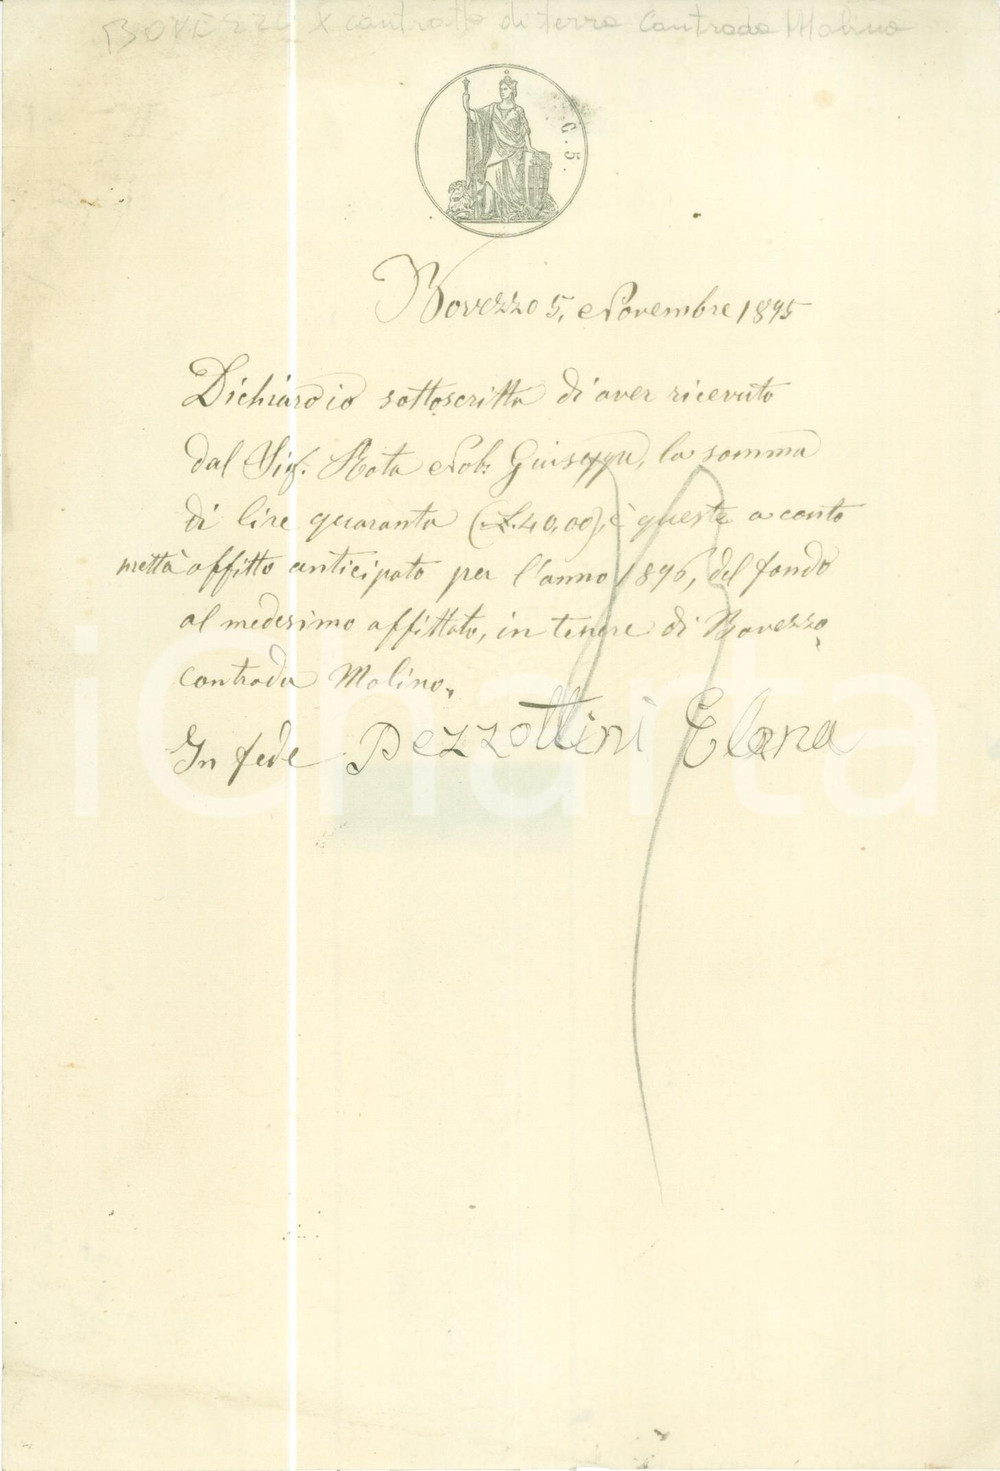 BOVEZZO X contratto di terra Contrada Molino
C. 5.
Bovezzo 5, Novembre 1895
Dichiaro io sottoscritta di aver ricevuto
dal Sig. Rota Nob. Guiseppe, la somma
di lire quaranta (L.40,00), è queste a conto
mettà affitto anticipato per l'anno 1896, del fondo
al medesimo affittato, in tenere di Bovezzo,
contrada Molino.
In fede Pezzottini Elena
iCharta